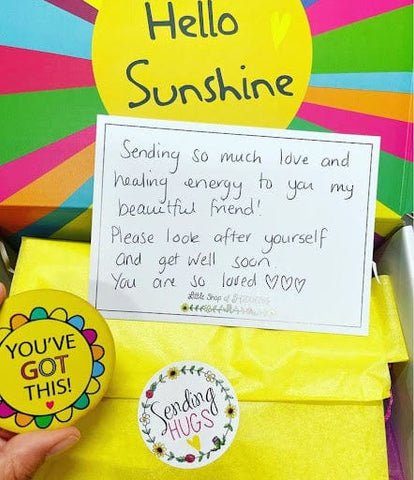 Hello
Sunshine
Sending so much love and
healing energy to you my
beautiful friend!
Please look after yourself
and get well soon
You are so loved ♡♡♡
Little Shop of
YOU'VE
GOT
THIS!
Sending
HUGS